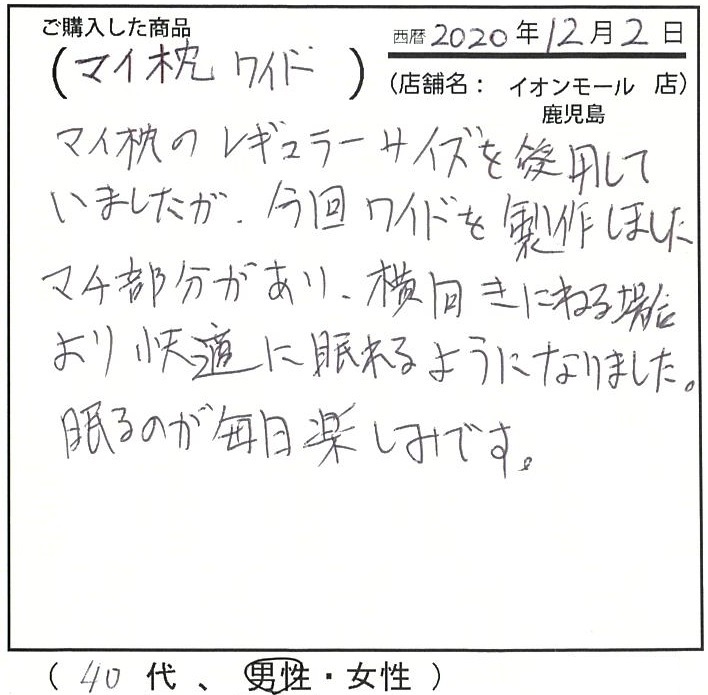 ご購入した商品
西暦 2020 年 12 月 2 日
(マイ枕 ワイド)
(店舗名: イオンモール 鹿児島 店)
マイ枕のレギュラーサイズを使用して
いましたが、今回ワイドを製作しました
マチ部分があり、横向きにねる場合
より快適に眠れるようになりました。
眠るのが毎日楽しみです。
( 40 代 、 男性・女性 )